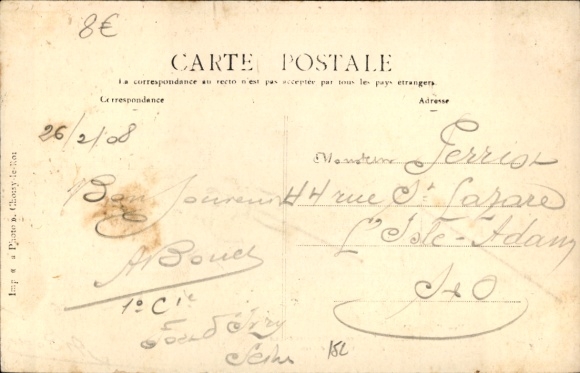 8€
CARTE POSTALE
La correspondance au recto n'est pas acceptée par tous les pays étrangers.
Correspondance
Adresse
26/2/08
Bon Souvenir
ABoud
1º Cie
Fort d'Ivry
Seine
Monsieur
44 rue St Lazare
L'Isle-Adam
S & O
Choisy-le-Roi